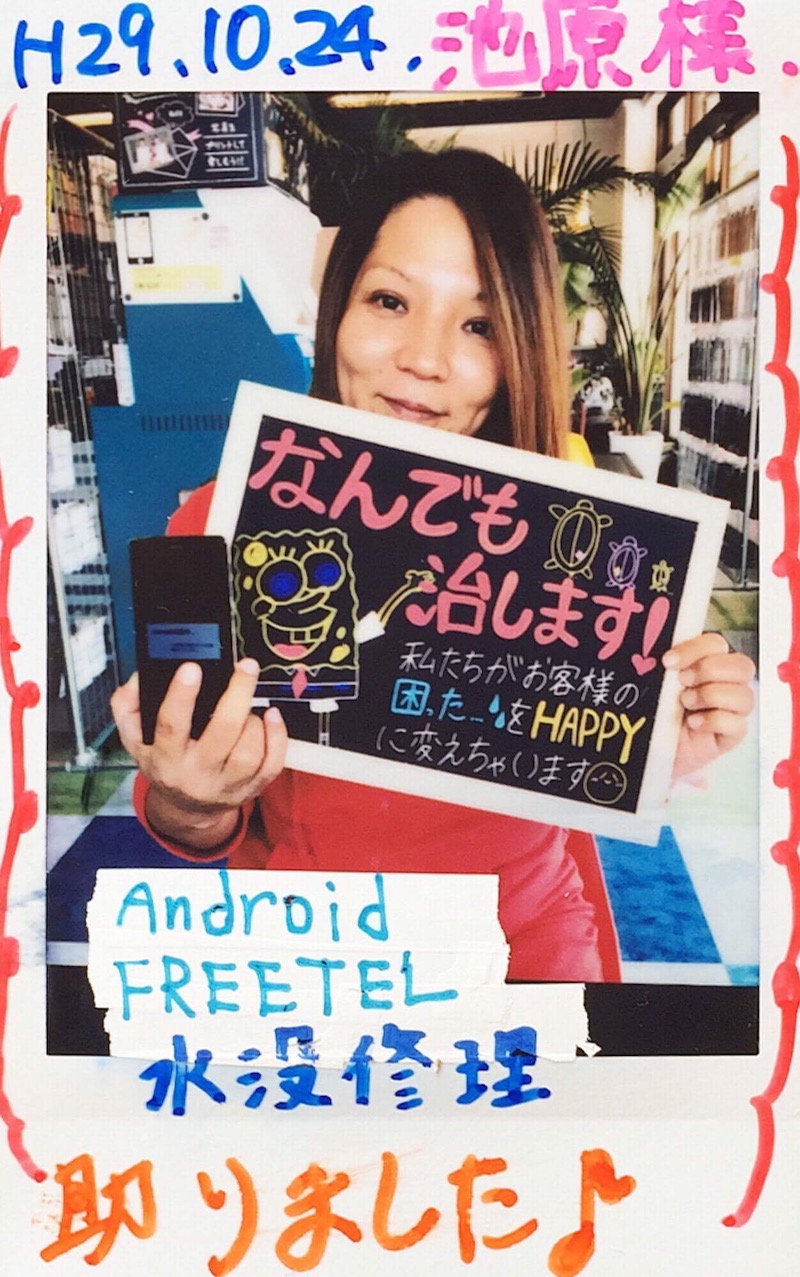 H29.10.24. 池原様.
なんでも
治します!
私たちがお客様の
困った...をHAPPY
に変えちゃいます
Android
FREETEL
水没修理
助りました♪